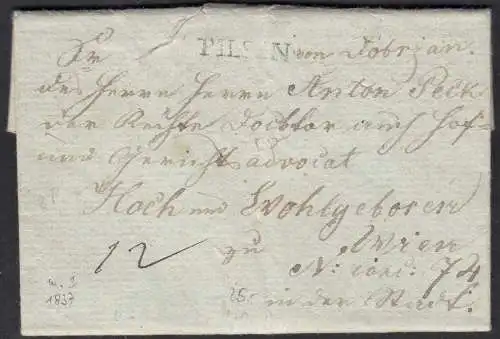 PILSEN von Dobrzan.
Sr
des Herrn Herrn Anton Peck
der Rechte Docktor auch Hof=
und Gerichts advocat
Hoch und Wohlgeboren
12 zu Wien
N: 74
in der Stadt.
1837